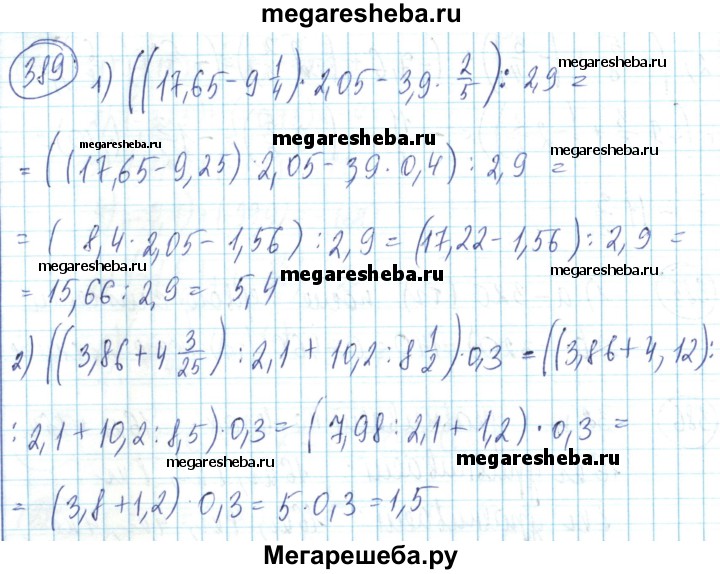 megaresheba.ru
389 1) ((17,65 - 9 1/4) · 2,05 - 3,9 · 2/5) : 2,9 =
megaresheba.ru
megaresheba.ru
megaresheba.ru
megaresheba.ru
= ((17,65 - 9,25) · 2,05 - 3,9 · 0,4) : 2,9 =
= ( 8,4 · 2,05 - 1,56) : 2,9 = (17,22 - 1,56) : 2,9 =
megaresheba.ru
megaresheba.ru
megaresheba.ru
= 15,66 : 2,9 = 5,4
2) ((3,86 + 4 3/25) : 2,1 + 10,2 : 8 1/2) · 0,3 = ((3,86 + 4,12) :
: 2,1 + 10,2 : 8,5) · 0,3 = (7,98 : 2,1 + 1,2) · 0,3 =
megaresheba.ru
megaresheba.ru
= (3,8 + 1,2) · 0,3 = 5 · 0,3 = 1,5
Мегарешеба.ру